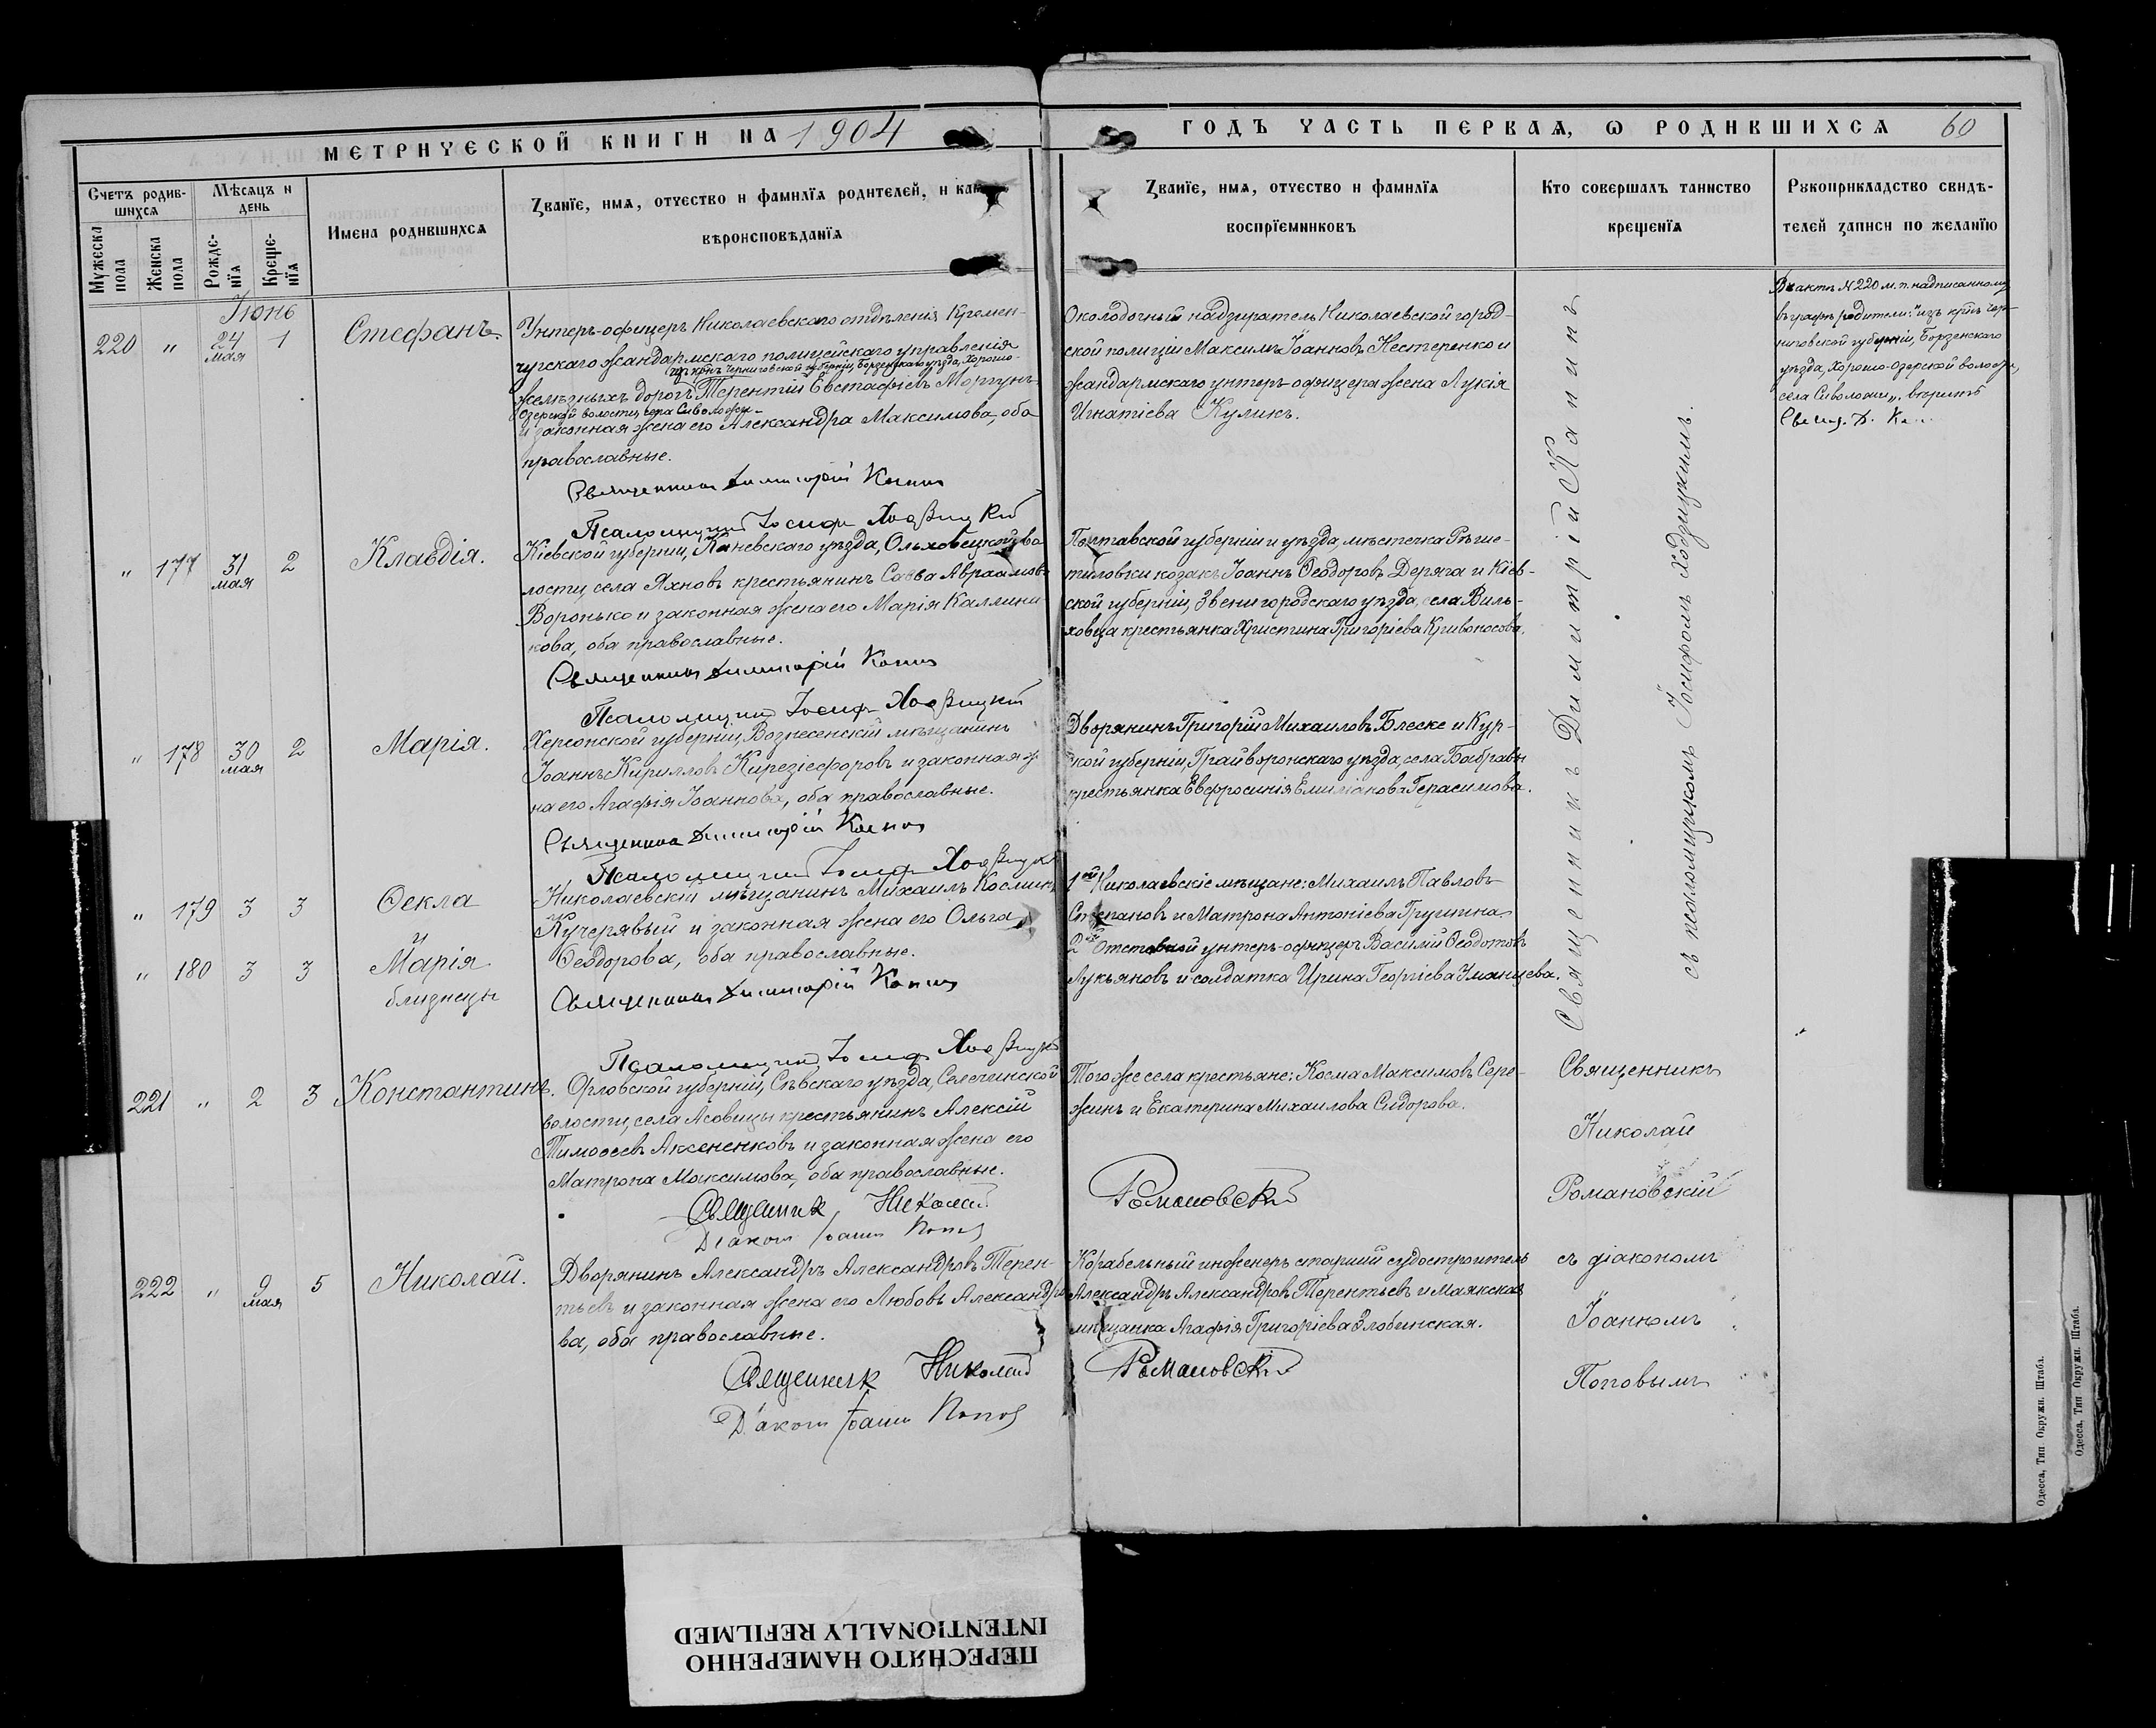 МЕТРИЧЕСКОЙ КНИГИ НА 1904
ГОДЪ ЧАСТЬ ПЕРВАЯ, Ѡ РОДИВШИХСЯ 60
Счетъ родив-
шихся
Мужеска пола
Женска пола
Мѣсяцъ и
день
Рожде-
нїя
Креще-
нїя
Имена родившихся
Званїе, имя, отчество и фамилїя родителей, и
вѣроисповѣданїя
Званїе, имя, отчество и фамилїя
воспрїемниковъ
Кто совершалъ таинство
крещенїя
Рукоприкладство свидѣ-
телей записи по желанїю
Іюнь
220 " 24 мая 1
Стефанъ.
Унтеръ-офицеръ Николаевскаго отдѣленія Кремен-
чугскаго жандармскаго полицейскаго управленія
изъ крѣ. Черниговской губерніи, Борзенскаго уѣзда, Хорошо-
желѣзныхъ дорогъ Терентій Евстафіевъ Моргунъ
Озерской волости, села Сиволожи
и законная жена его Александра Максимова, оба
православные.
Священникъ Димитрій Канинъ
Псаломщикъ Іосифъ Ходзицкій
Околодочный надзиратель Николаевской город-
ской полиціи Максимъ Іоанновъ Нестеренко и
жандармскаго унтеръ-офицера жена Лукія
Игнатіева Куликъ.
Въ актѣ № 220 м. п. надписанному
въ графѣ родители: "изъ крѣ. Чер-
ниговской губерніи, Борзенскаго
уѣзда, Хорошо-Озерской волости,
села Сиволожи", вѣрить
Свящ. Д. К
" 177 31 мая 2
Клавдія.
Кіевской губерніи, Каневскаго уѣзда, Ольховецкой во
лости, села Яхновъ крестьянинъ Савва Авраамовъ
Воронько и законная жена его Марія Каллини
кова, оба православные.
Священникъ Димитрій Канинъ
Псаломщикъ Іосифъ Ходзицкій
Полтавской губерніи и уѣзда, мѣстечка Рѣше-
тиловки козакъ Іоаннъ Ѳеодоровъ Деряга и Кіев-
ской губерніи, Звенигородскаго уѣзда, села Виль-
ховца крестьянка Христина Григоріева Кривоносова.
" 178 30 мая 2
Марія.
Херсонской губерніи, Вознесенскій мѣщанинъ
Іоаннъ Кирилловъ Кирезіефоровъ и законная ж
на его Агафія Іоаннова, оба православные.
Священникъ Димитрій Канинъ
Псаломщикъ Іосифъ Ходзицкій
Дворянинъ Григорій Михаиловъ Блеске и Кур-
ской губерніи, Грайворонскаго уѣзда, села Бобравы
крестьянка Евфросинія Емиліанова Герасимова.
" 179 3 3
Ѳекла
и
" 180 3 3
Марія
близнецы
Николаевскій мѣщанинъ Михаилъ Косминъ
Кучерявый и законная жена его Ольга
Ѳеодорова, оба православные.
Священникъ Димитрій Канинъ
Псаломщикъ Іосифъ Ходзицкій
1ой Николаевскіе мѣщане: Михаилъ Павловъ
Степановъ и Матрона Антоніева Грушина
2ой Отставной унтеръ-офицеръ Василій Ѳеодотовъ
Лукьяновъ и солдатка Ирина Георгіева Уманцева.
Священникъ Димитрій Канинъ
съ псаломщикомъ Іосифомъ Ходзицкимъ.
221 " 2 3
Константинъ.
Орловской губерніи, Сѣвскаго уѣзда, Селечинской
волости, села Лсовицы крестьянинъ Алексій
Тимоѳеевъ Аксененковъ и законная жена его
Матрона Максимова, оба православные.
Священникъ Николай Романовскій
Діаконъ Іоаннъ Поповъ
Того же села крестьяне: Косма Максимовъ Сере-
жинъ и Екатерина Михаилова Сидорова.
Священникъ
Николай
Романовскій
съ діакономъ
Іоанномъ
Поповымъ
222 " 9 мая 5
Николай.
Дворянинъ Александръ Александровъ Терен-
тьевъ и законная жена его Любовь Александро
ва, оба православные.
Священникъ Николай Романовскій
Діаконъ Іоаннъ Поповъ
Корабельный инженеръ старшій судостроитель
Александръ Александровъ Терентьевъ и Маякская
мѣщанка Агафія Григоріева Злобинская.
Одесса, Тип. Окружн. Штаба.
Одесса, Тип. Окружн. Штаба.
ПЕРЕСНЯТО НАМЕРЕННО
INTENTIONALLY REFILMED